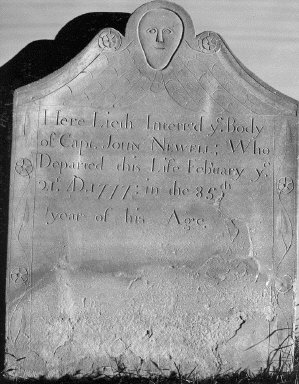 Here Lieth Interr'd yͤ. Body
of Capt. JOHN NEWELL; Who
Departed this Life Feb'uary yͤ
21ˢᵗ. A.D. 1777: in the 85ᵗʰ
year of his Age.